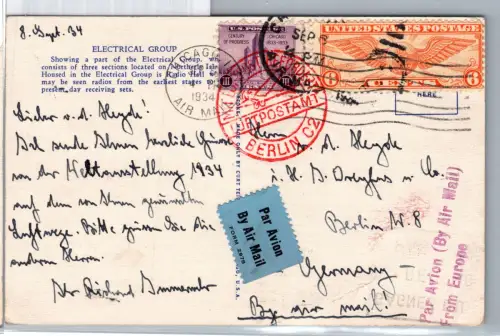 8. Sept. 34
ELECTRICAL GROUP
Showing a part of the Electrical Group, wh
consists of three sections located on Northerly Isl
Housed in the Electrical Group is Radio Hall w
may be seen radios from the earliest stages to
present day receiving sets.
U.S. POSTAGE
CENTURY OF PROGRESS
CHICAGO
1833-1933
UNITED STATES POSTAGE
6
6
CHICAGO
SEP 8
1934
AIR MAIL
LUFTPOSTAMT
BERLIN C2
HERE
Lieber v. d. Heyde!
Bald sende Ihnen herzliche Grüsse
von der Weltausstellung 1934
auf dem von Ihnen gewünschten
Luftwege. Bitte grüssen Sie die
anderen Herren.
Ihr Richard
Herrn
v. d. Heyde
Dreyfus & Co.
Berlin W. 8
Germany
Bye air mail!
Par Avion
By Air Mail
FORM 2978
Par Avion (By Air Mail)
From Europe